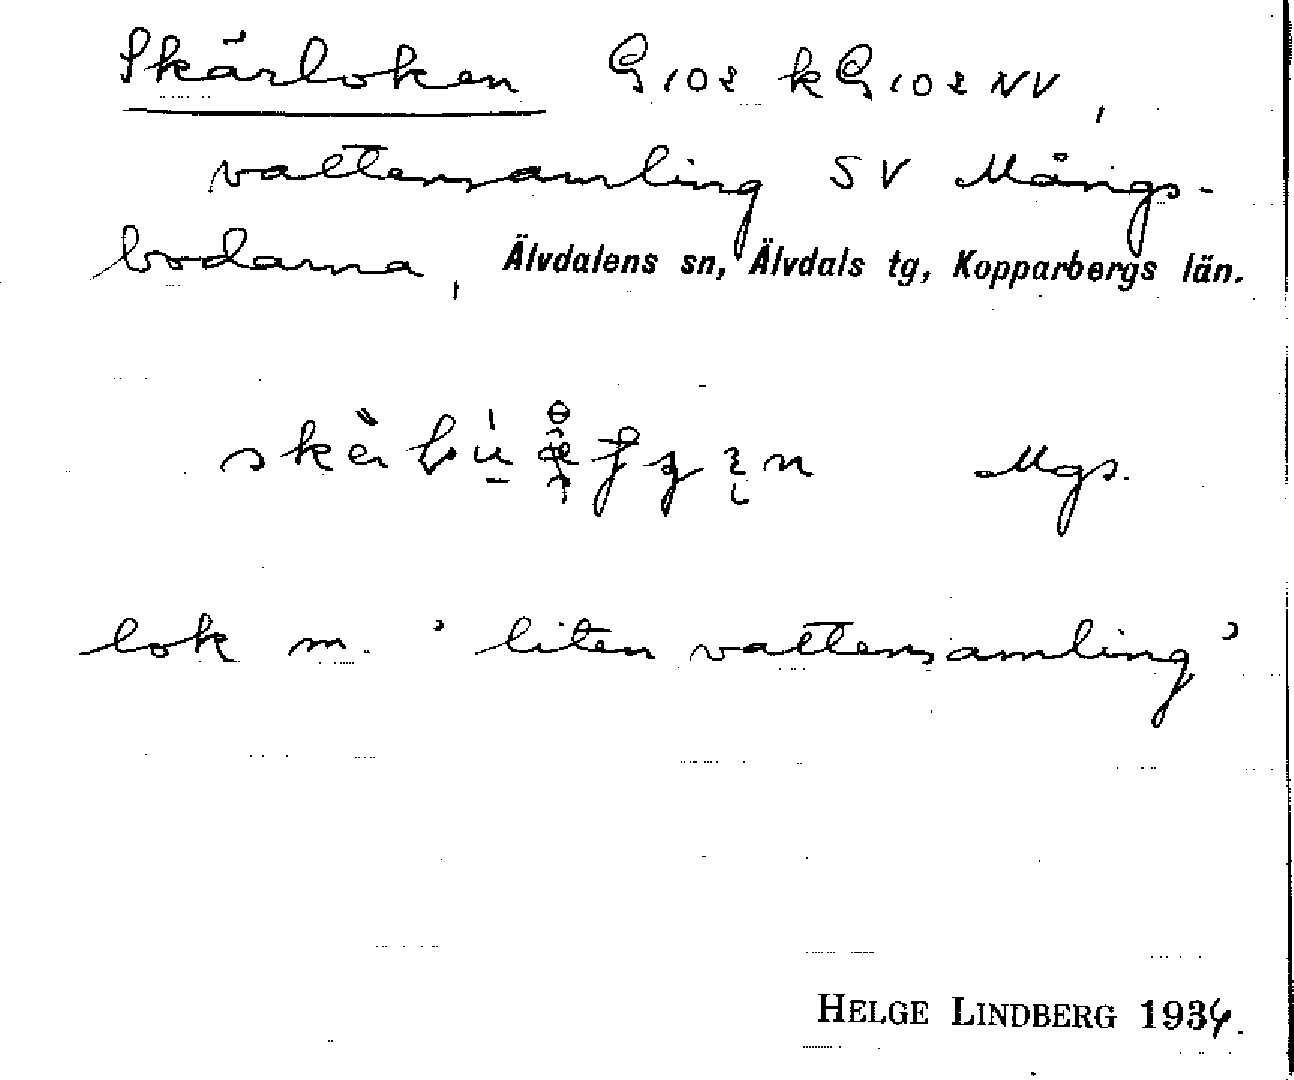 Skärloken G102 kG102 NV,
vattensamling SV Mångs-
bodarna, Älvdalens sn, Älvdals tg, Kopparbergs län.
Mgs.
lok m. ' liten vattensamling '
HELGE LINDBERG 1934.